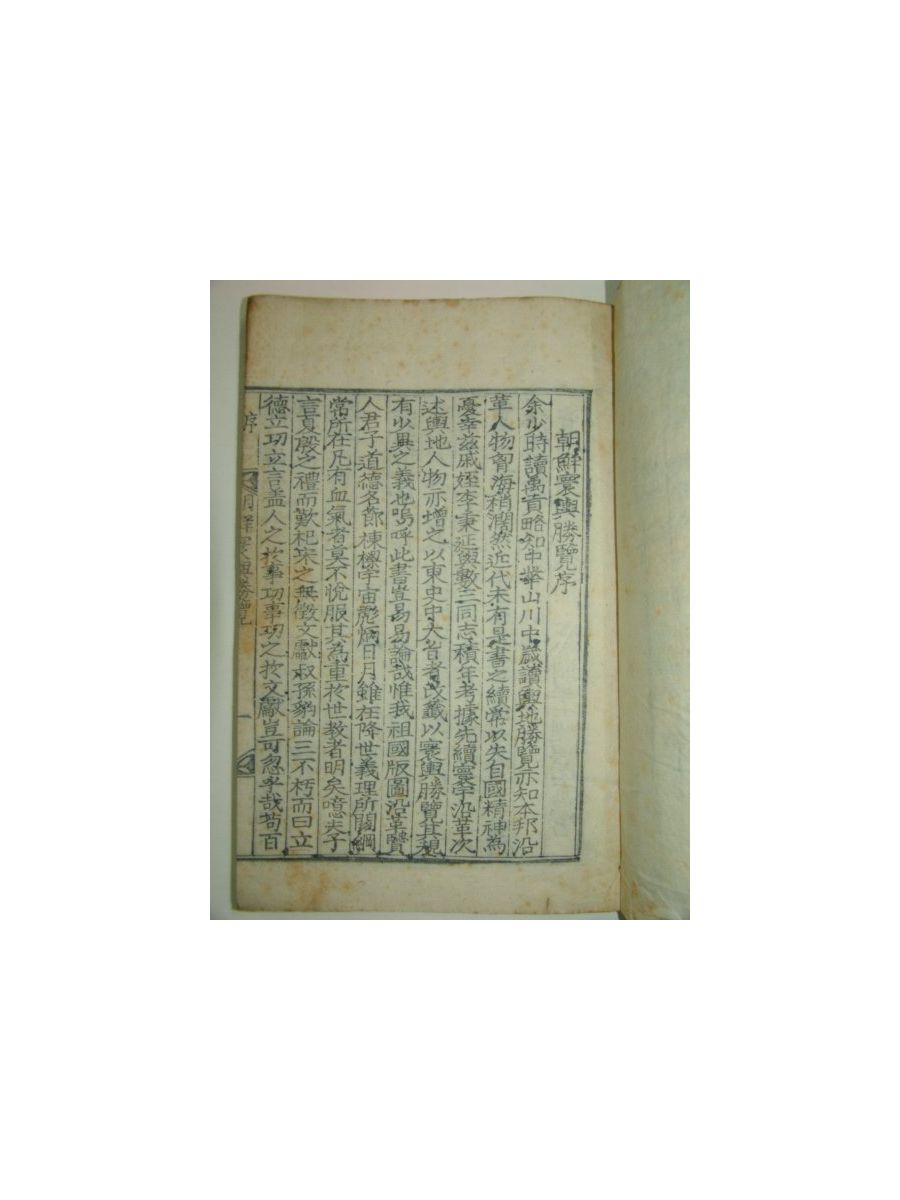 朝鮮寰輿勝覽序
余少時讀禹貢略知中華山川中歲讀輿地勝覽亦知本邦沿
革人物胷海稍濶然近代未有是書之續常以失自國精神為
憂幸玆戚姪李秉延與數三同志積年考據先續寰宇沿革次
述輿地人物亦增之以東史中大旨者改籤以寰輿勝覽其規
有少異之義也嗚呼此書豈易易論哉惟我祖國版圖沿革賢
人君子道德名節棟樑宇宙彪炳日月雖在降世義理所關綱
常所在凡有血氣者莫不悅服其為重於世教者明矣噫夫子
言夏殷之禮而歎杞宋之無徵文獻叔孫豹論三不朽而曰立
德立功立言盖人之於事功事功之於文獻豈可忽乎哉苟百
序 朝鮮寰輿勝覽 一